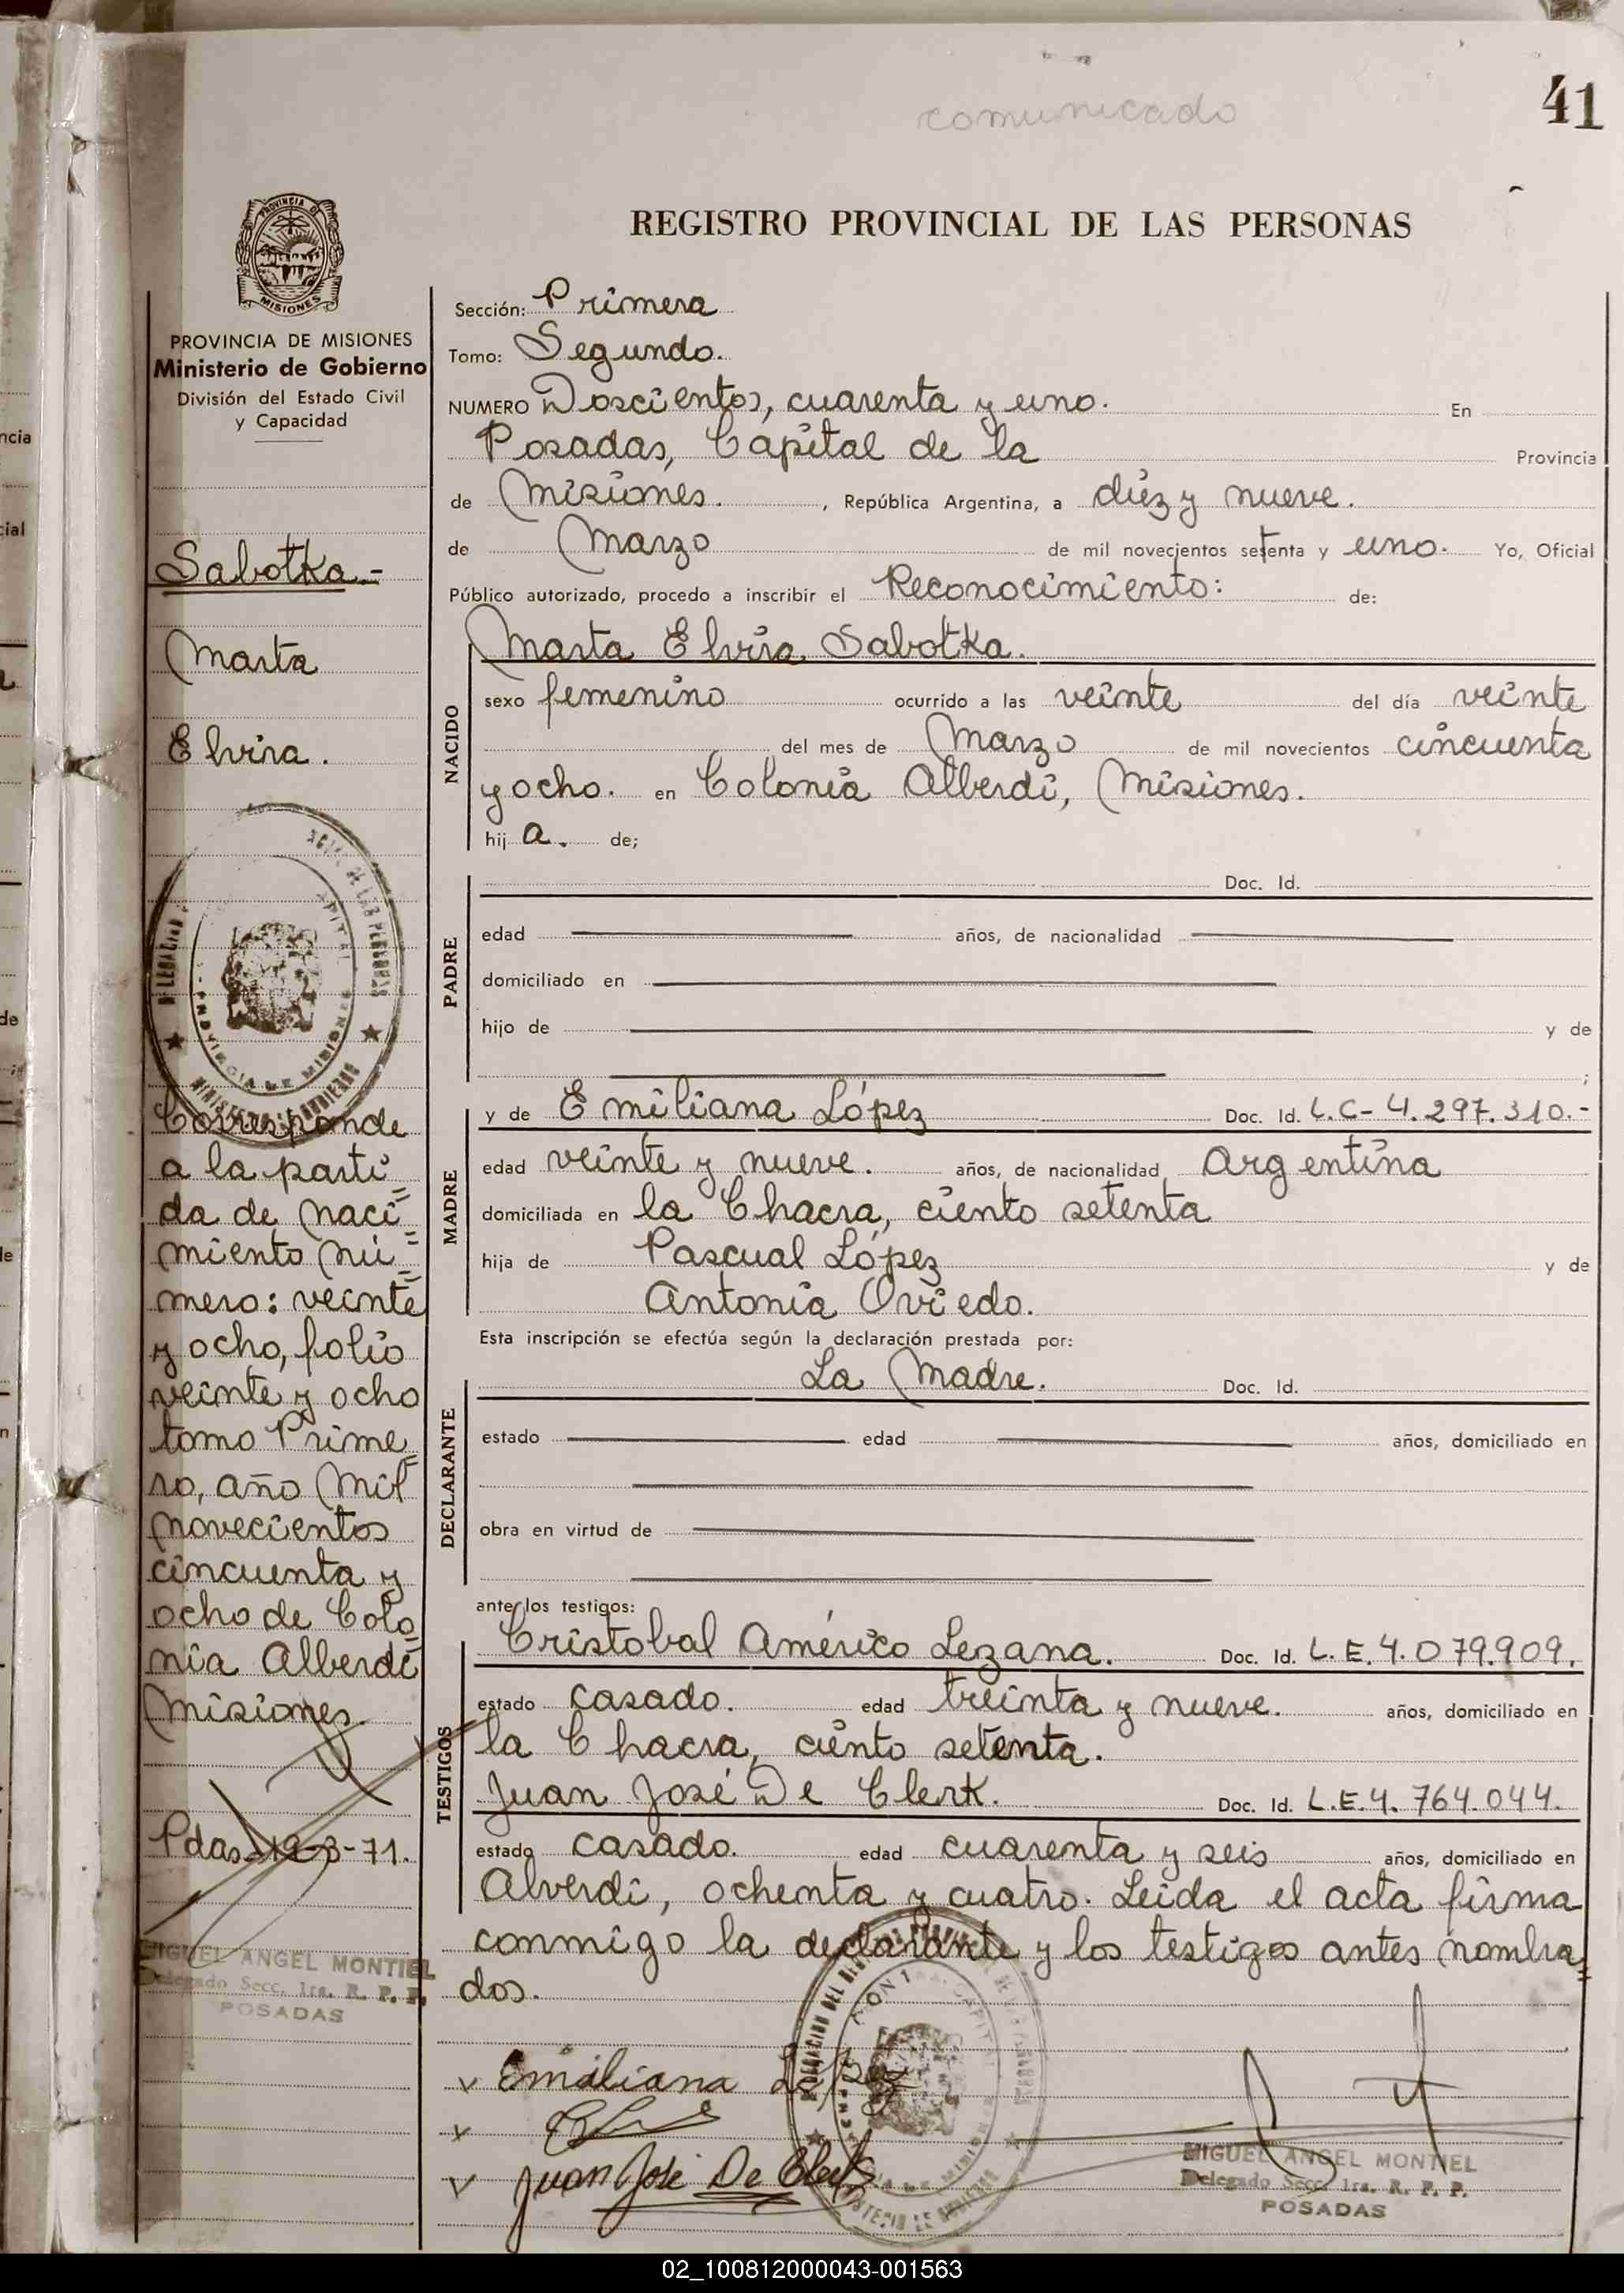 comunicado
41
REGISTRO PROVINCIAL DE LAS PERSONAS
PROVINCIA DE MISIONES
Ministerio de Gobierno
División del Estado Civil
y Capacidad
Sabotka.-
Marta
Elvira.
Corresponde
a la parti=
da de naci=
miento nú=
mero: veinte
y ocho, folio
veinte y ocho
tomo Prime=
ro, año mil
novecientos
cincuenta y
ocho de Colo=
nia Alberdi
Misiones.
Pdas. 19-3-71.
MIGUEL ANGEL MONTIEL
Delegado Secc. 1ra. R. P. P.
POSADAS
Sección: Primera
Tomo: Segundo.
NUMERO Doscientos, cuarenta y uno. En
Posadas, Capital de la Provincia
de Misiones. , República Argentina, a diez y nueve.
de Marzo de mil novecientos setenta y uno. Yo, Oficial
Público autorizado, procedo a inscribir el Reconocimiento: de:
Marta Elvira Sabotka.
NACIDO
sexo femenino ocurrido a las veinte del día veinte
del mes de Marzo de mil novecientos cincuenta
y ocho. en Colonia Alberdi, Misiones.
hij a. de;
Doc. Id.
PADRE
edad años, de nacionalidad
domiciliado en
hijo de y de
;
MADRE
y de Emiliana López Doc. Id. L.C- 4.297.310.-
edad veinte y nueve. años, de nacionalidad Argentina
domiciliada en la Chacra, ciento setenta
hija de Pascual López y de
Antonia Oviedo.
Esta inscripción se efectúa según la declaración prestada por:
DECLARANTE
La Madre. Doc. Id.
estado edad años, domiciliado en
obra en virtud de
ante los testigos:
TESTIGOS
Cristobal Américo Lezana. Doc. Id. L.E.4.079.909.
estado casado. edad treinta y nueve. años, domiciliado en
la Chacra, ciento setenta.
Juan José De Clerk. Doc. Id. L.E.4.764.044.
estado casado. edad cuarenta y seis años, domiciliado en
Alverdi, ochenta y cuatro. Leida el acta firma
conmigo la declarante y los testigos antes nombra=
dos.
Emiliana López
Juan José De Clerk
MIGUEL ANGEL MONTIEL
Delegado Secc. 1ra. R. P. P.
POSADAS
02_100812000043-001563